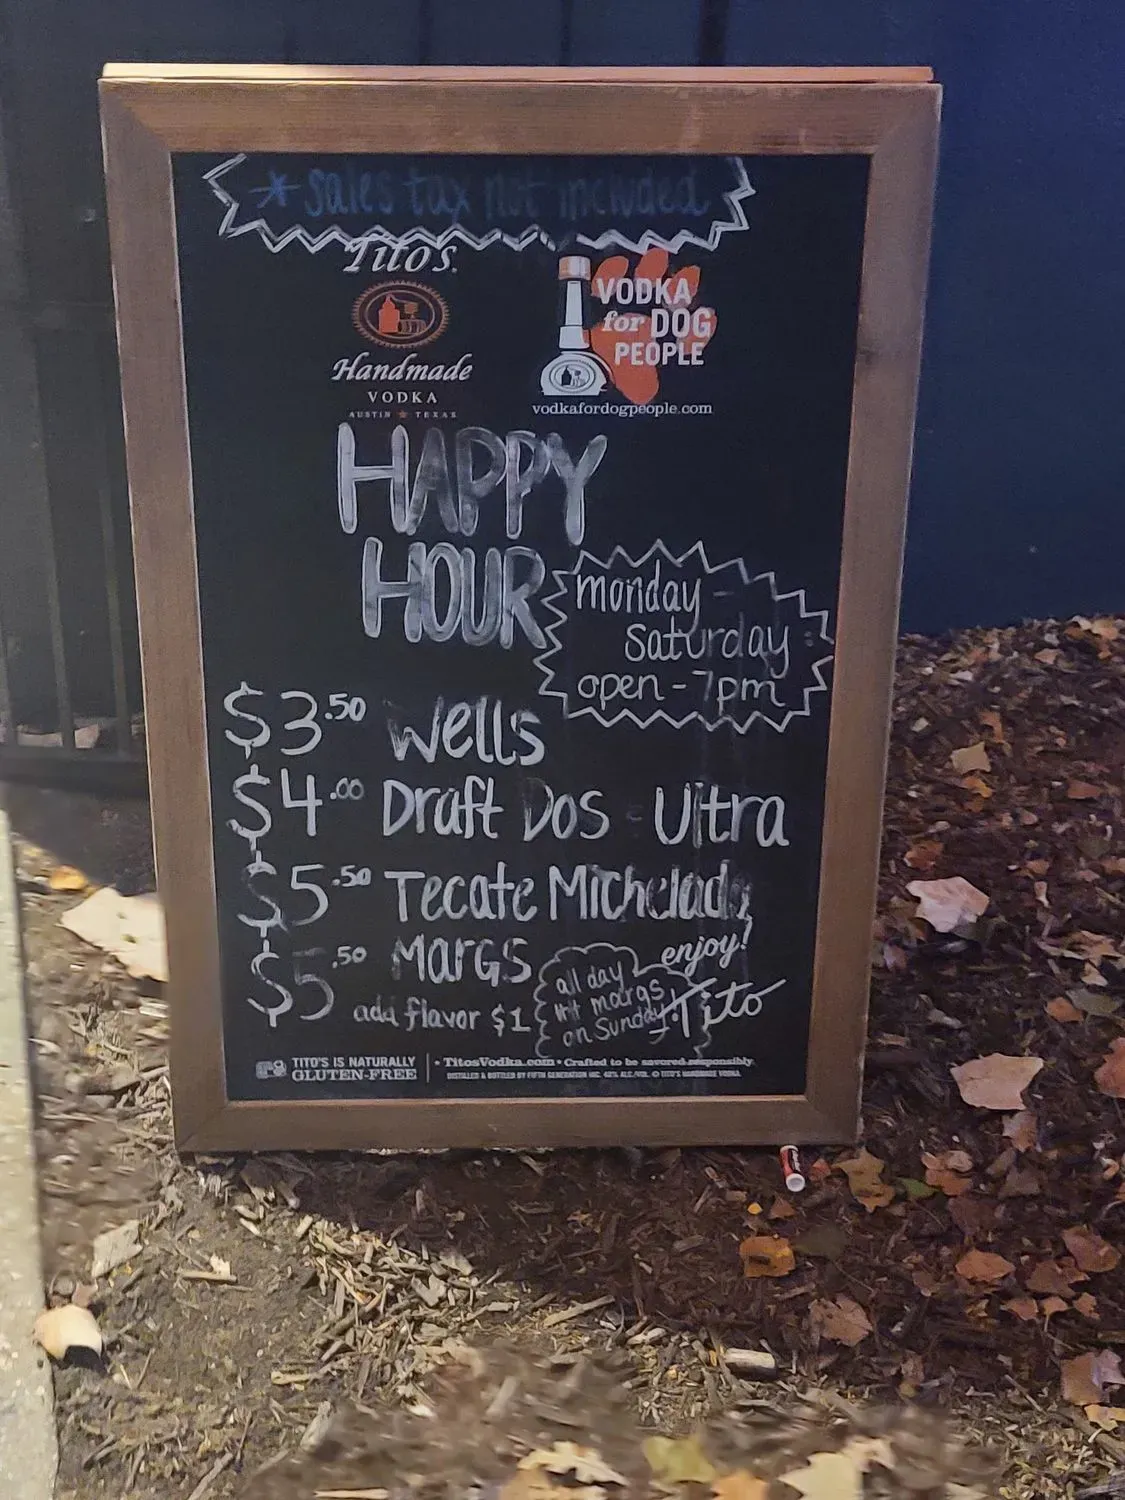 * sales tax not included
Tito's
Handmade
VODKA
AUSTIN ★ TEXAS
VODKA
for DOG
PEOPLE
vodkafordogpeople.com
HAPPY
HOUR
monday -
saturday :
open - 7pm
$3.50 wells
$4.00 Draft Dos - Ultra
$5.50 Tecate Michelada
$5.50 MARGS
add flavor $1
all day
margs
on Sunday!
enjoy!
Tito
TITO'S IS NATURALLY
GLUTEN-FREE
• TitosVodka.com • Crafted to be savored responsibly.
DISTILLED & BOTTLED BY FIFTH GENERATION INC. 40% ALC./VOL. © TITO'S HANDMADE VODKA.